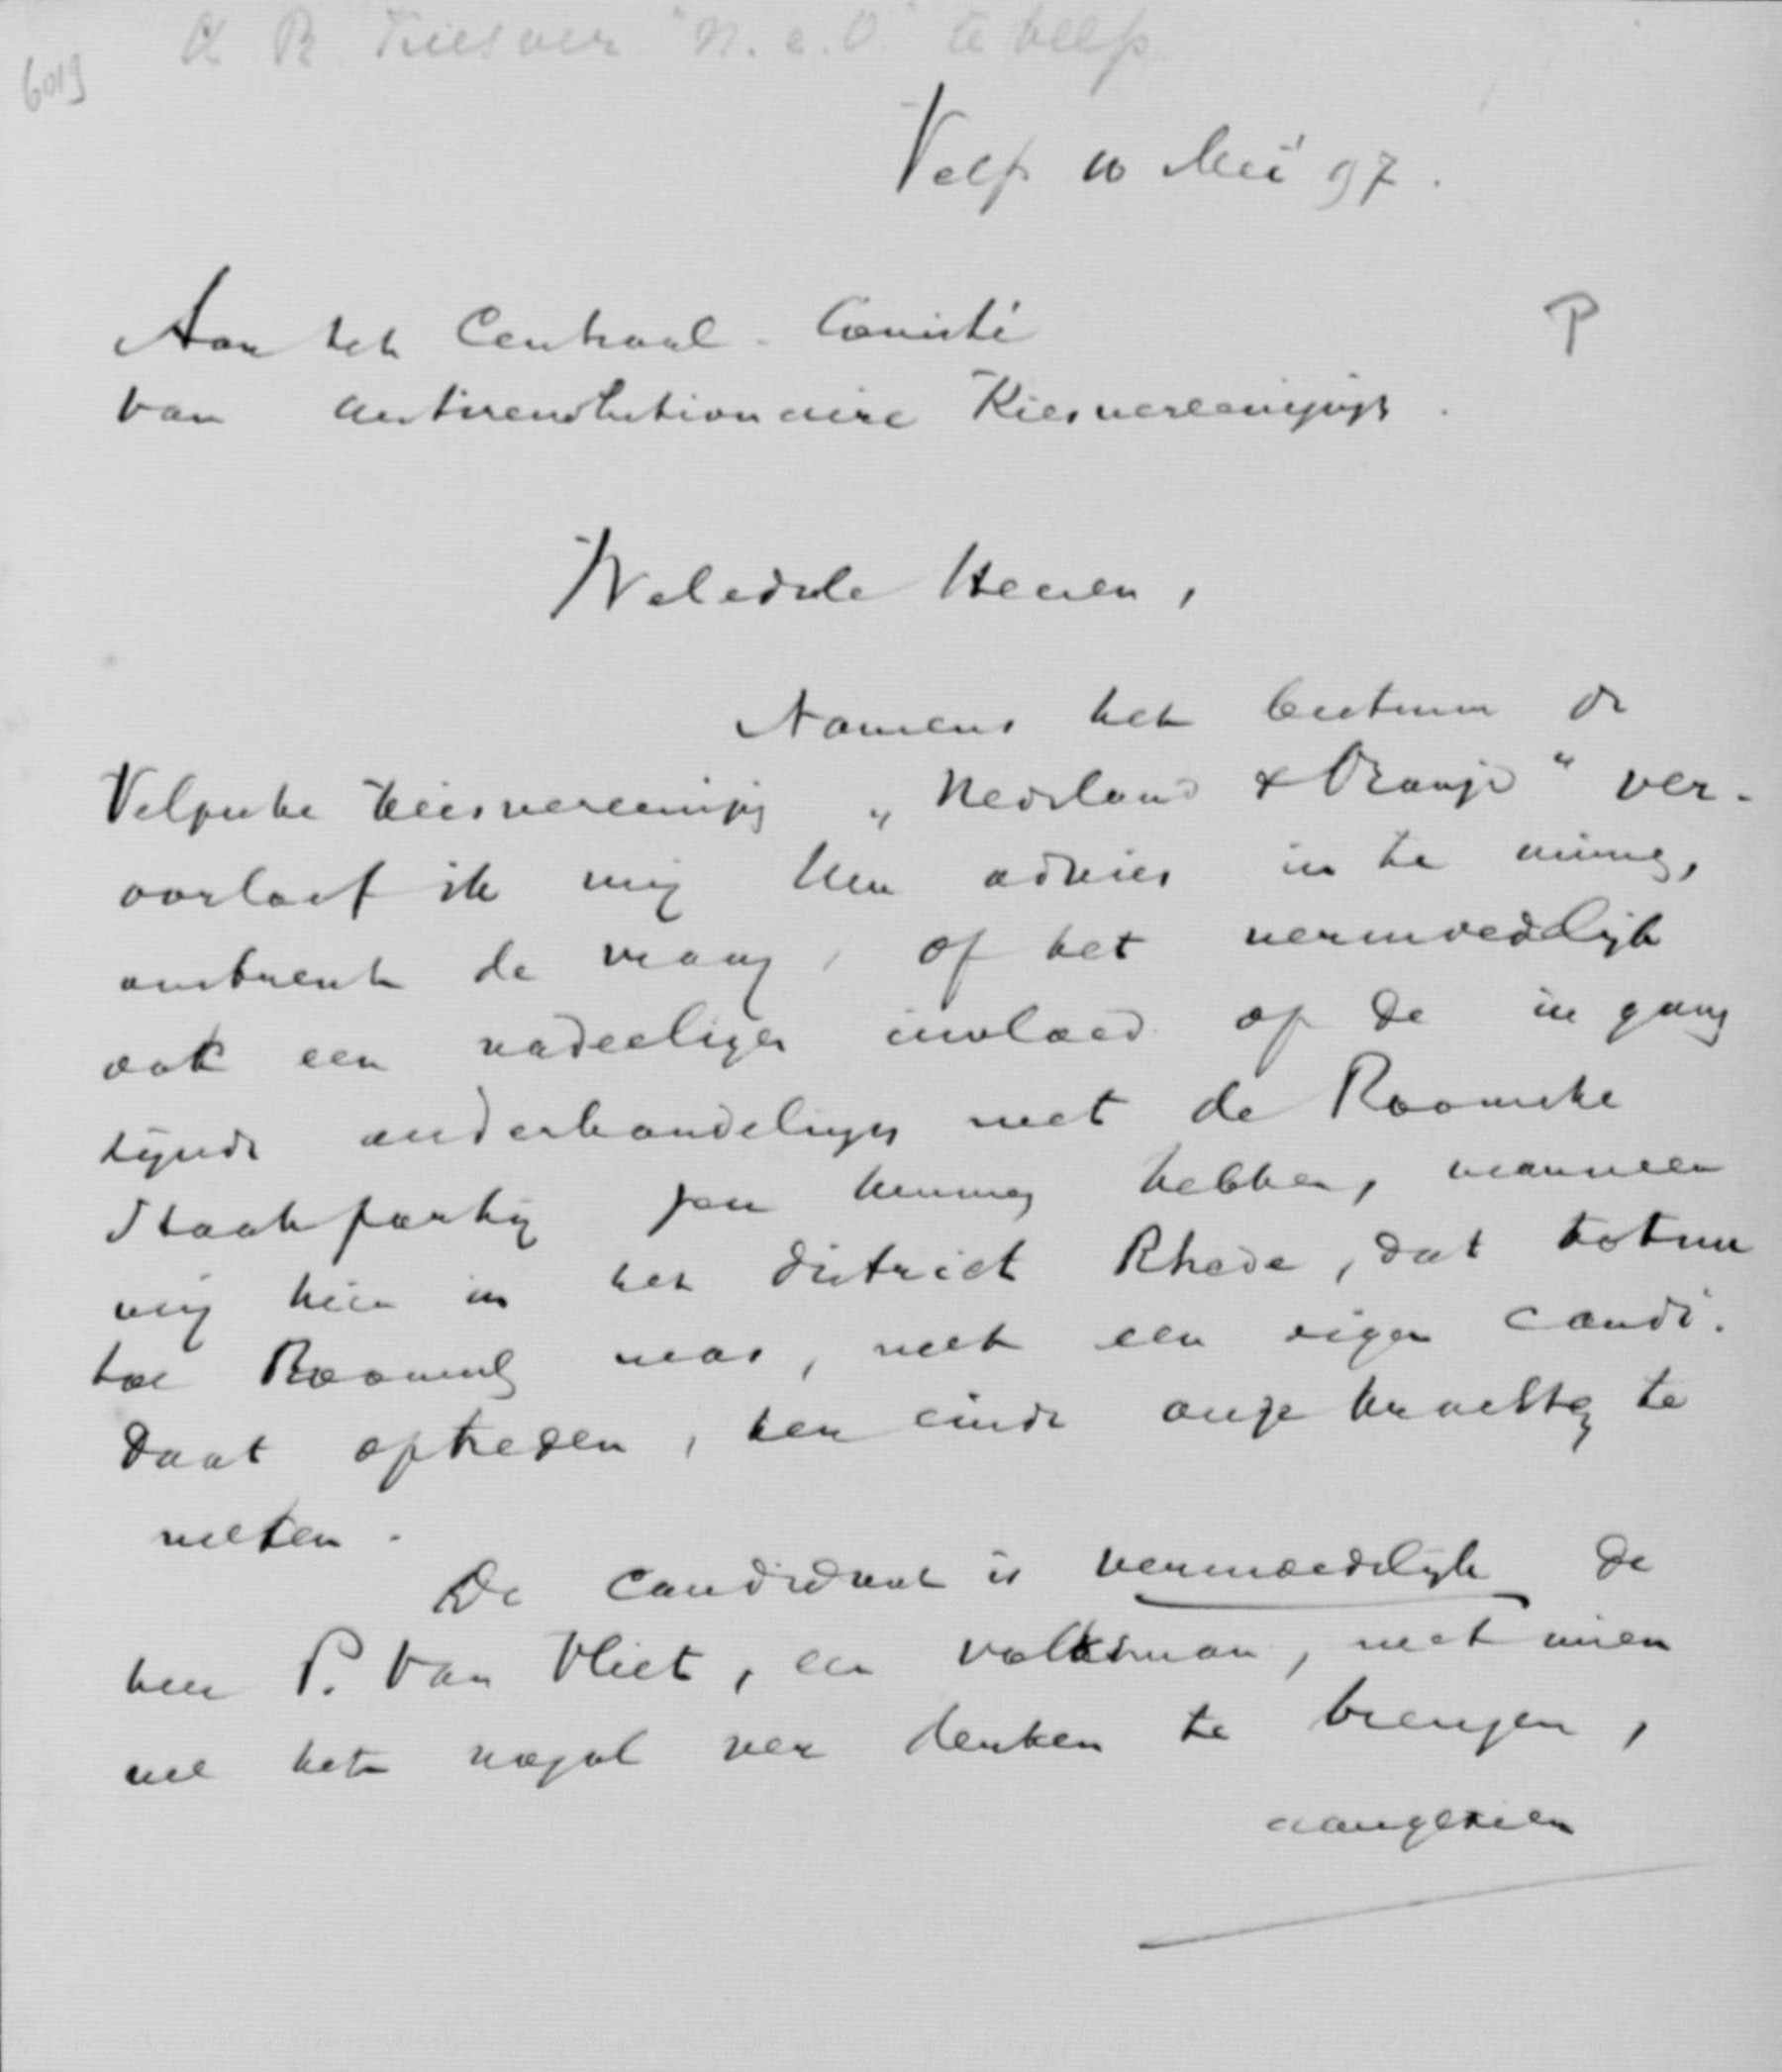 A R Kiesver. "N. e. O." te Velp
6019
Velp 10 Mei 97.
P
Aan het Centraal-Comité
van antirevolutionaire Kiesvereenigingen.
Weledele Heeren,
Namens het bestuur der
Velpsche kiesvereeniging „Nederland & Oranje" ver-
oorloof ik mij Uw advies in te winnen,
omtrent de vraag, of het vermoedelijk
ook een nadeeligen invloed op de in gang
zijnde onderhandelingen met de Roomsche
Staatspartij zou kunnen hebben, wanneer
wij hier in het district Rhede, dat totnu
toe Roomsch was, met een eigen candi-
daat optreden, ten einde onze krachten te
meten.
De candidaat is vermoedelijk de
heer P. van Vliet, een volksman, met wien
we het nogal ver denken te brengen,
aangezien